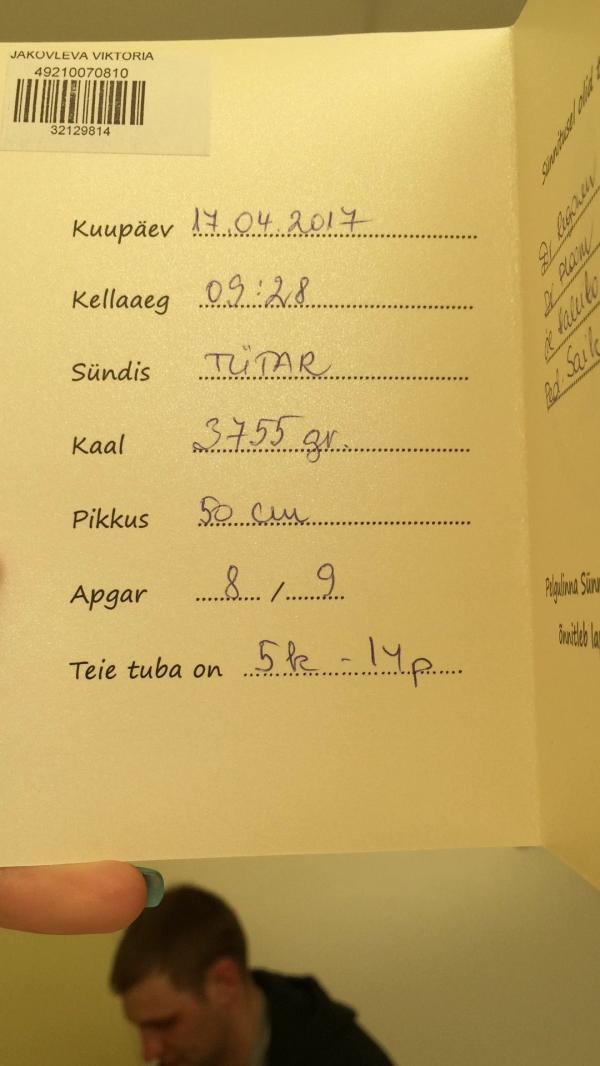 JAKOVLEVA VIKTORIA
49210070810
32129814
Kuupäev 17.04.2017
Kellaaeg 09:28
Sündis TÜTAR
Kaal 3755 gr.
Pikkus 50 cm
Apgar 8 / 9
Teie tuba on 5k - 14p
Sünnitusel olid
Pelgulinna Sünn
õnnitleb